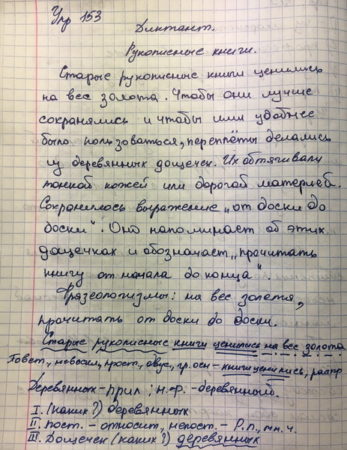 Упр 153
Диктант.
Рукописные книги.
Старые рукописные книги ценились
на вес золота. Чтобы они лучше
сохранялись и чтобы ими удобнее
было пользоваться, переплёты делались
из деревянных дощечек. Их обтягивали
тонкой кожей или дорогой материей.
Сохранилось выражение „от доски до
доски". Оно напоминает об этих
дощечках и обозначает „прочитать
книгу от начала до конца".
Фразеологизмы: на вес золота,
прочитать от доски до доски.
Старые рукописные книги ценились на вес золота
Повест, невоскл, прост, двус, гр.осн - книги ценились, распр
Деревянных - прил; н.ф. - деревянный.
I. (каких?) деревянных
II. пост. - относит, непост. - Р.п., мн.ч.
III. Дощечек (каких?) деревянных